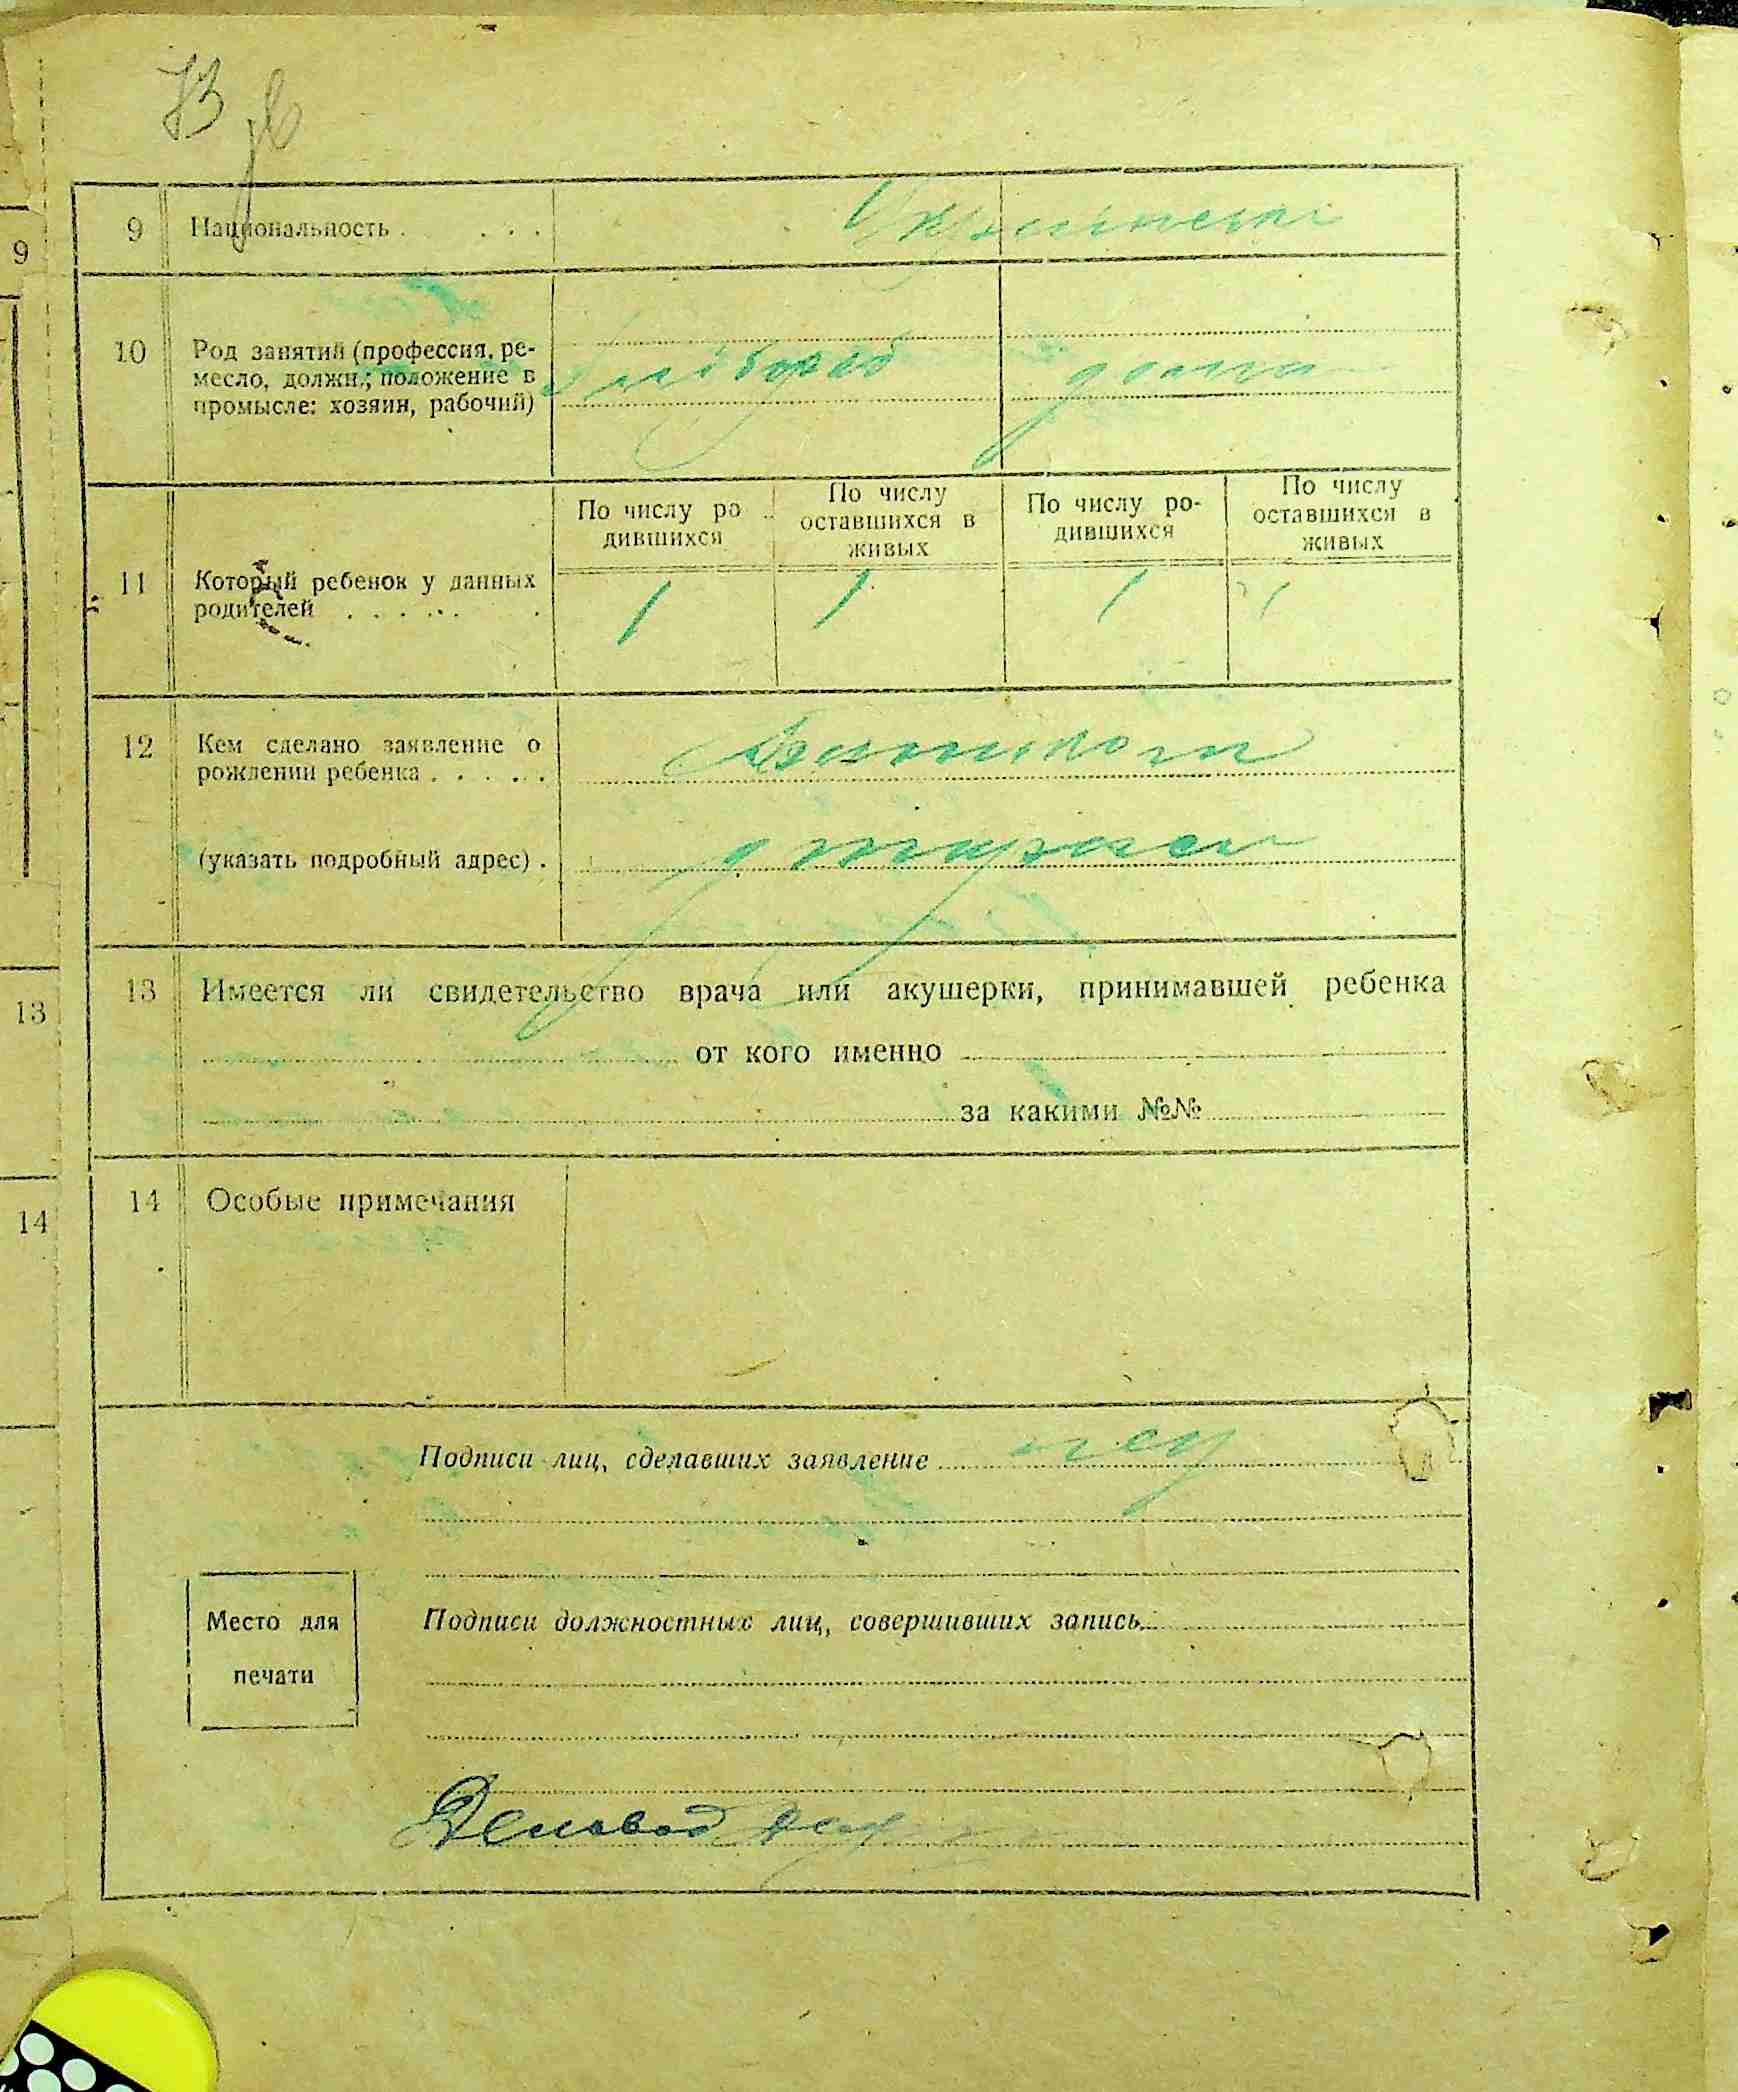 73
9 Национальность . . . .
10 Род занятий (профессия, ре-
месло, должн.; положение в
промысле: хозяин, рабочий)
дома
По числу ро
дившихся
По числу
оставшихся в
живых
По числу ро-
дившихся
По числу
оставшихся в
живых
11 Который ребенок у данных
родителей . . . . . .
1 1 1 1
12 Кем сделано заявление о
рождении ребенка . . . . .
(указать подробный адрес) .
13 Имеется ли свидетельство врача или акушерки, принимавшей ребенка
от кого именно
за какими №№
14 Особые примечания
Подписи лиц, сделавших заявление
Место для
печати
Подписи должностных лиц, совершивших запись
Деловод
9
13
14